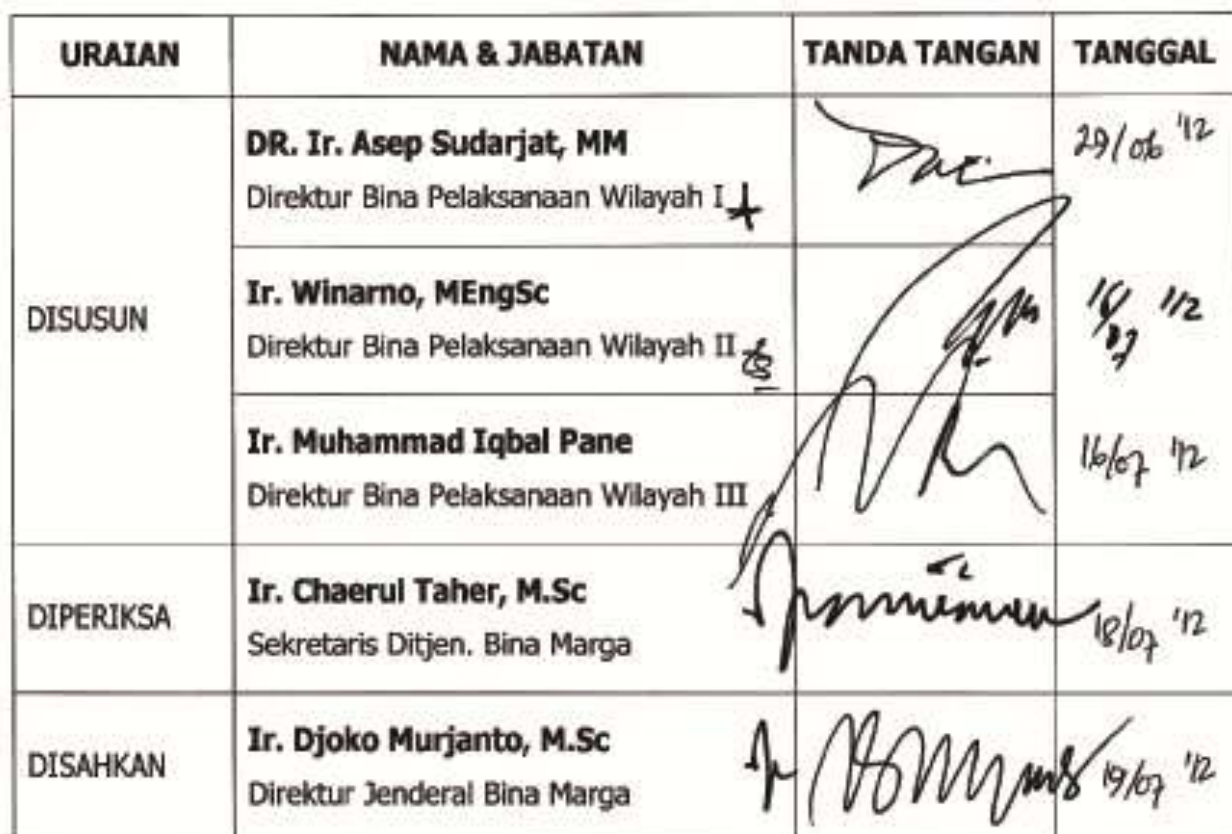 URAIAN NAMA & JABATAN TANDA TANGAN TANGGAL
DISUSUN
DR. Ir. Asep Sudarjat, MM
Direktur Bina Pelaksanaan Wilayah I
29/06 '12
Ir. Winarno, MEngSc
Direktur Bina Pelaksanaan Wilayah II
Ir. Muhammad Iqbal Pane
Direktur Bina Pelaksanaan Wilayah III
16/07 '12
DIPERIKSA
Ir. Chaerul Taher, M.Sc
Sekretaris Ditjen. Bina Marga
18/07 '12
DISAHKAN
Ir. Djoko Murjanto, M.Sc
Direktur Jenderal Bina Marga
19/07 '12